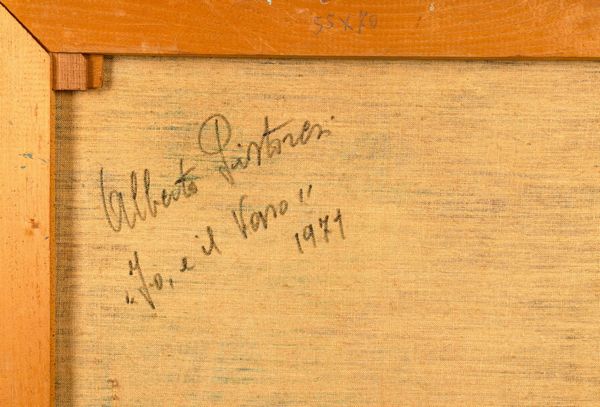 55x70
Alberto Pistoresi
"Io, e il Vero"
1971